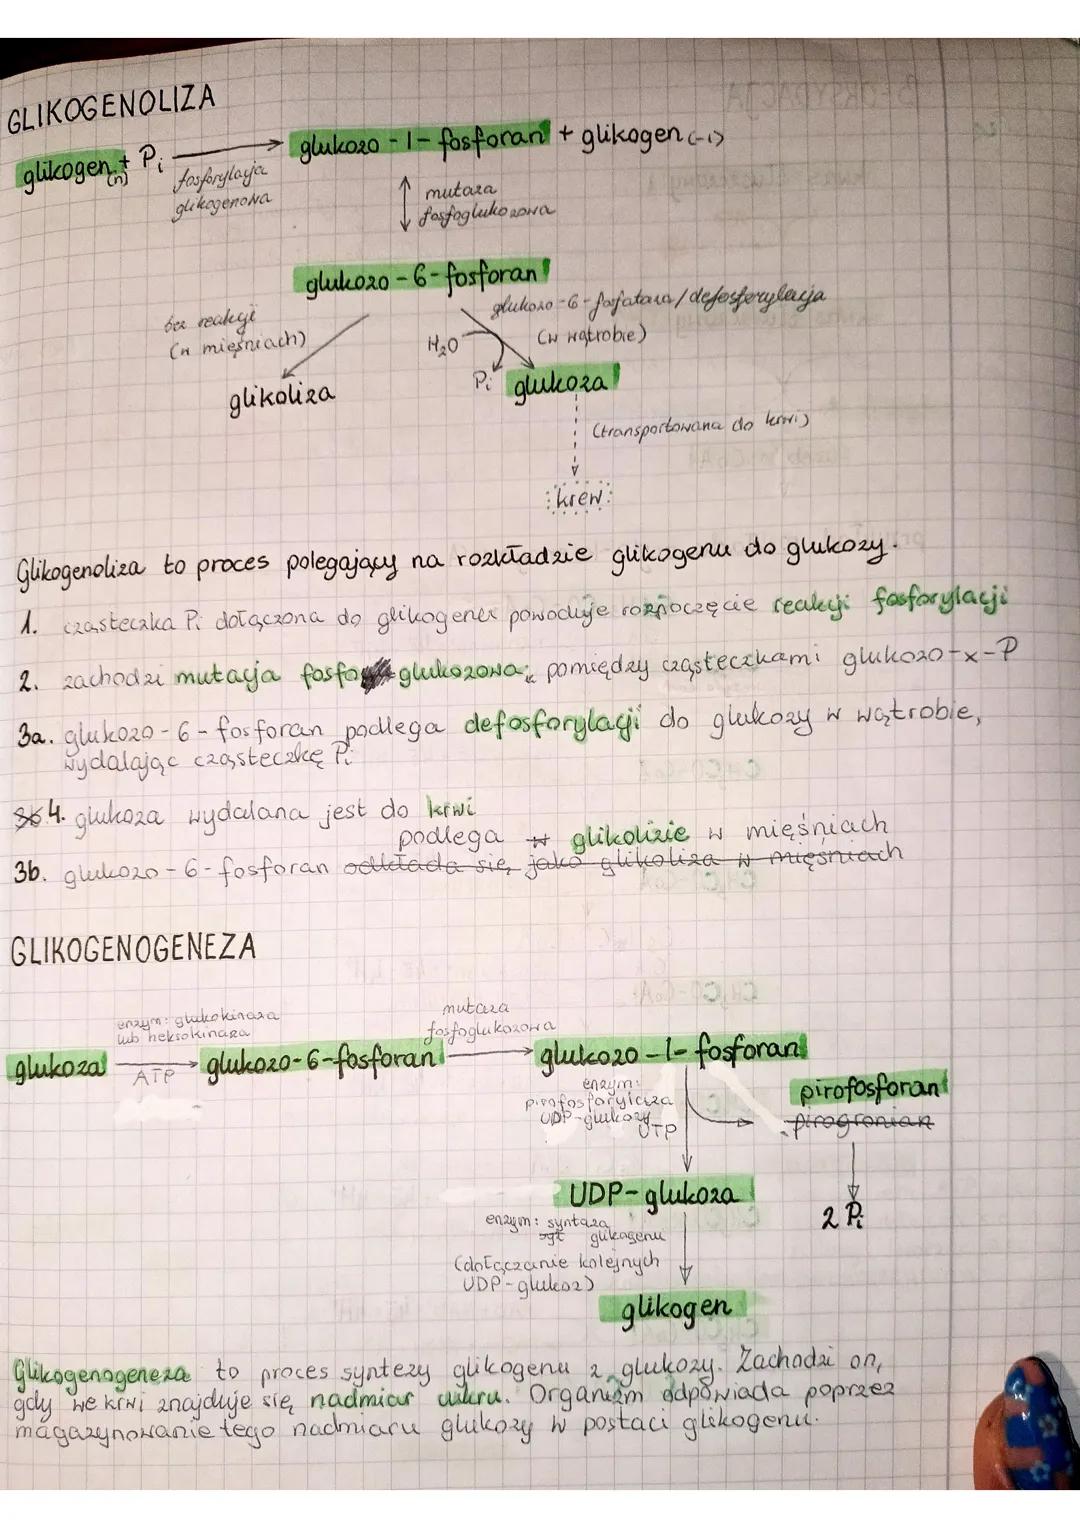 GLIKOGENOLIZA
glikogen(n) + Pi → glukozo-1-fosforan + glikogen(-1)
fosforylaza
glikogenowa
mutaza
fosfoglukozowa
glukozo-6-fosforan
glukozo-6-fosfataza/defosforylacja
bez reakcji
(w mięśniach)
H₂O
(w wątrobie)
glikoliza
Pi
glukoza
(transportowana do krwi)
krew
Glikogenoliza to proces polegający na rozkładzie glikogenu do glukozy.
1. cząsteczka Pi dołączona do glikogenu powoduje rozpoczęcie reakcji fosforylacji
2. zachodzi mutacja fosfoglukozowa; pomiędzy cząsteczkami glukozo-x-P
3a. glukozo-6-fosforan podlega defosforylacji do glukozy w wątrobie,
wydalając cząsteczkę Pi
4. glukoza wydalana jest do krwi
podlega glikolizie w mięśniach
3b. glukozo-6-fosforan odkłada się jako glikoliza w mięśniach
GLIKOGENOGENEZA
enzym: glukokinaza
lub heksokinaza
mutaza
fosfoglukozowa
glukoza → glukozo-6-fosforan → glukozo-1-fosforan
ATP
enzym:
pirofosforylaza
UDP-glukozy
UTP
pirofosforan
pirogronian
UDP-glukoza
2 Pi
enzym: syntaza
glikogenu
(dołączanie kolejnych
UDP-glukoz)
glikogen
Glikogenogeneza to proces syntezy glikogenu z glukozy. Zachodzi on,
gdy we krwi znajduje się nadmiar cukru. Organizm odpowiada poprzez
magazynowanie tego nadmiaru glukozy w postaci glikogenu.